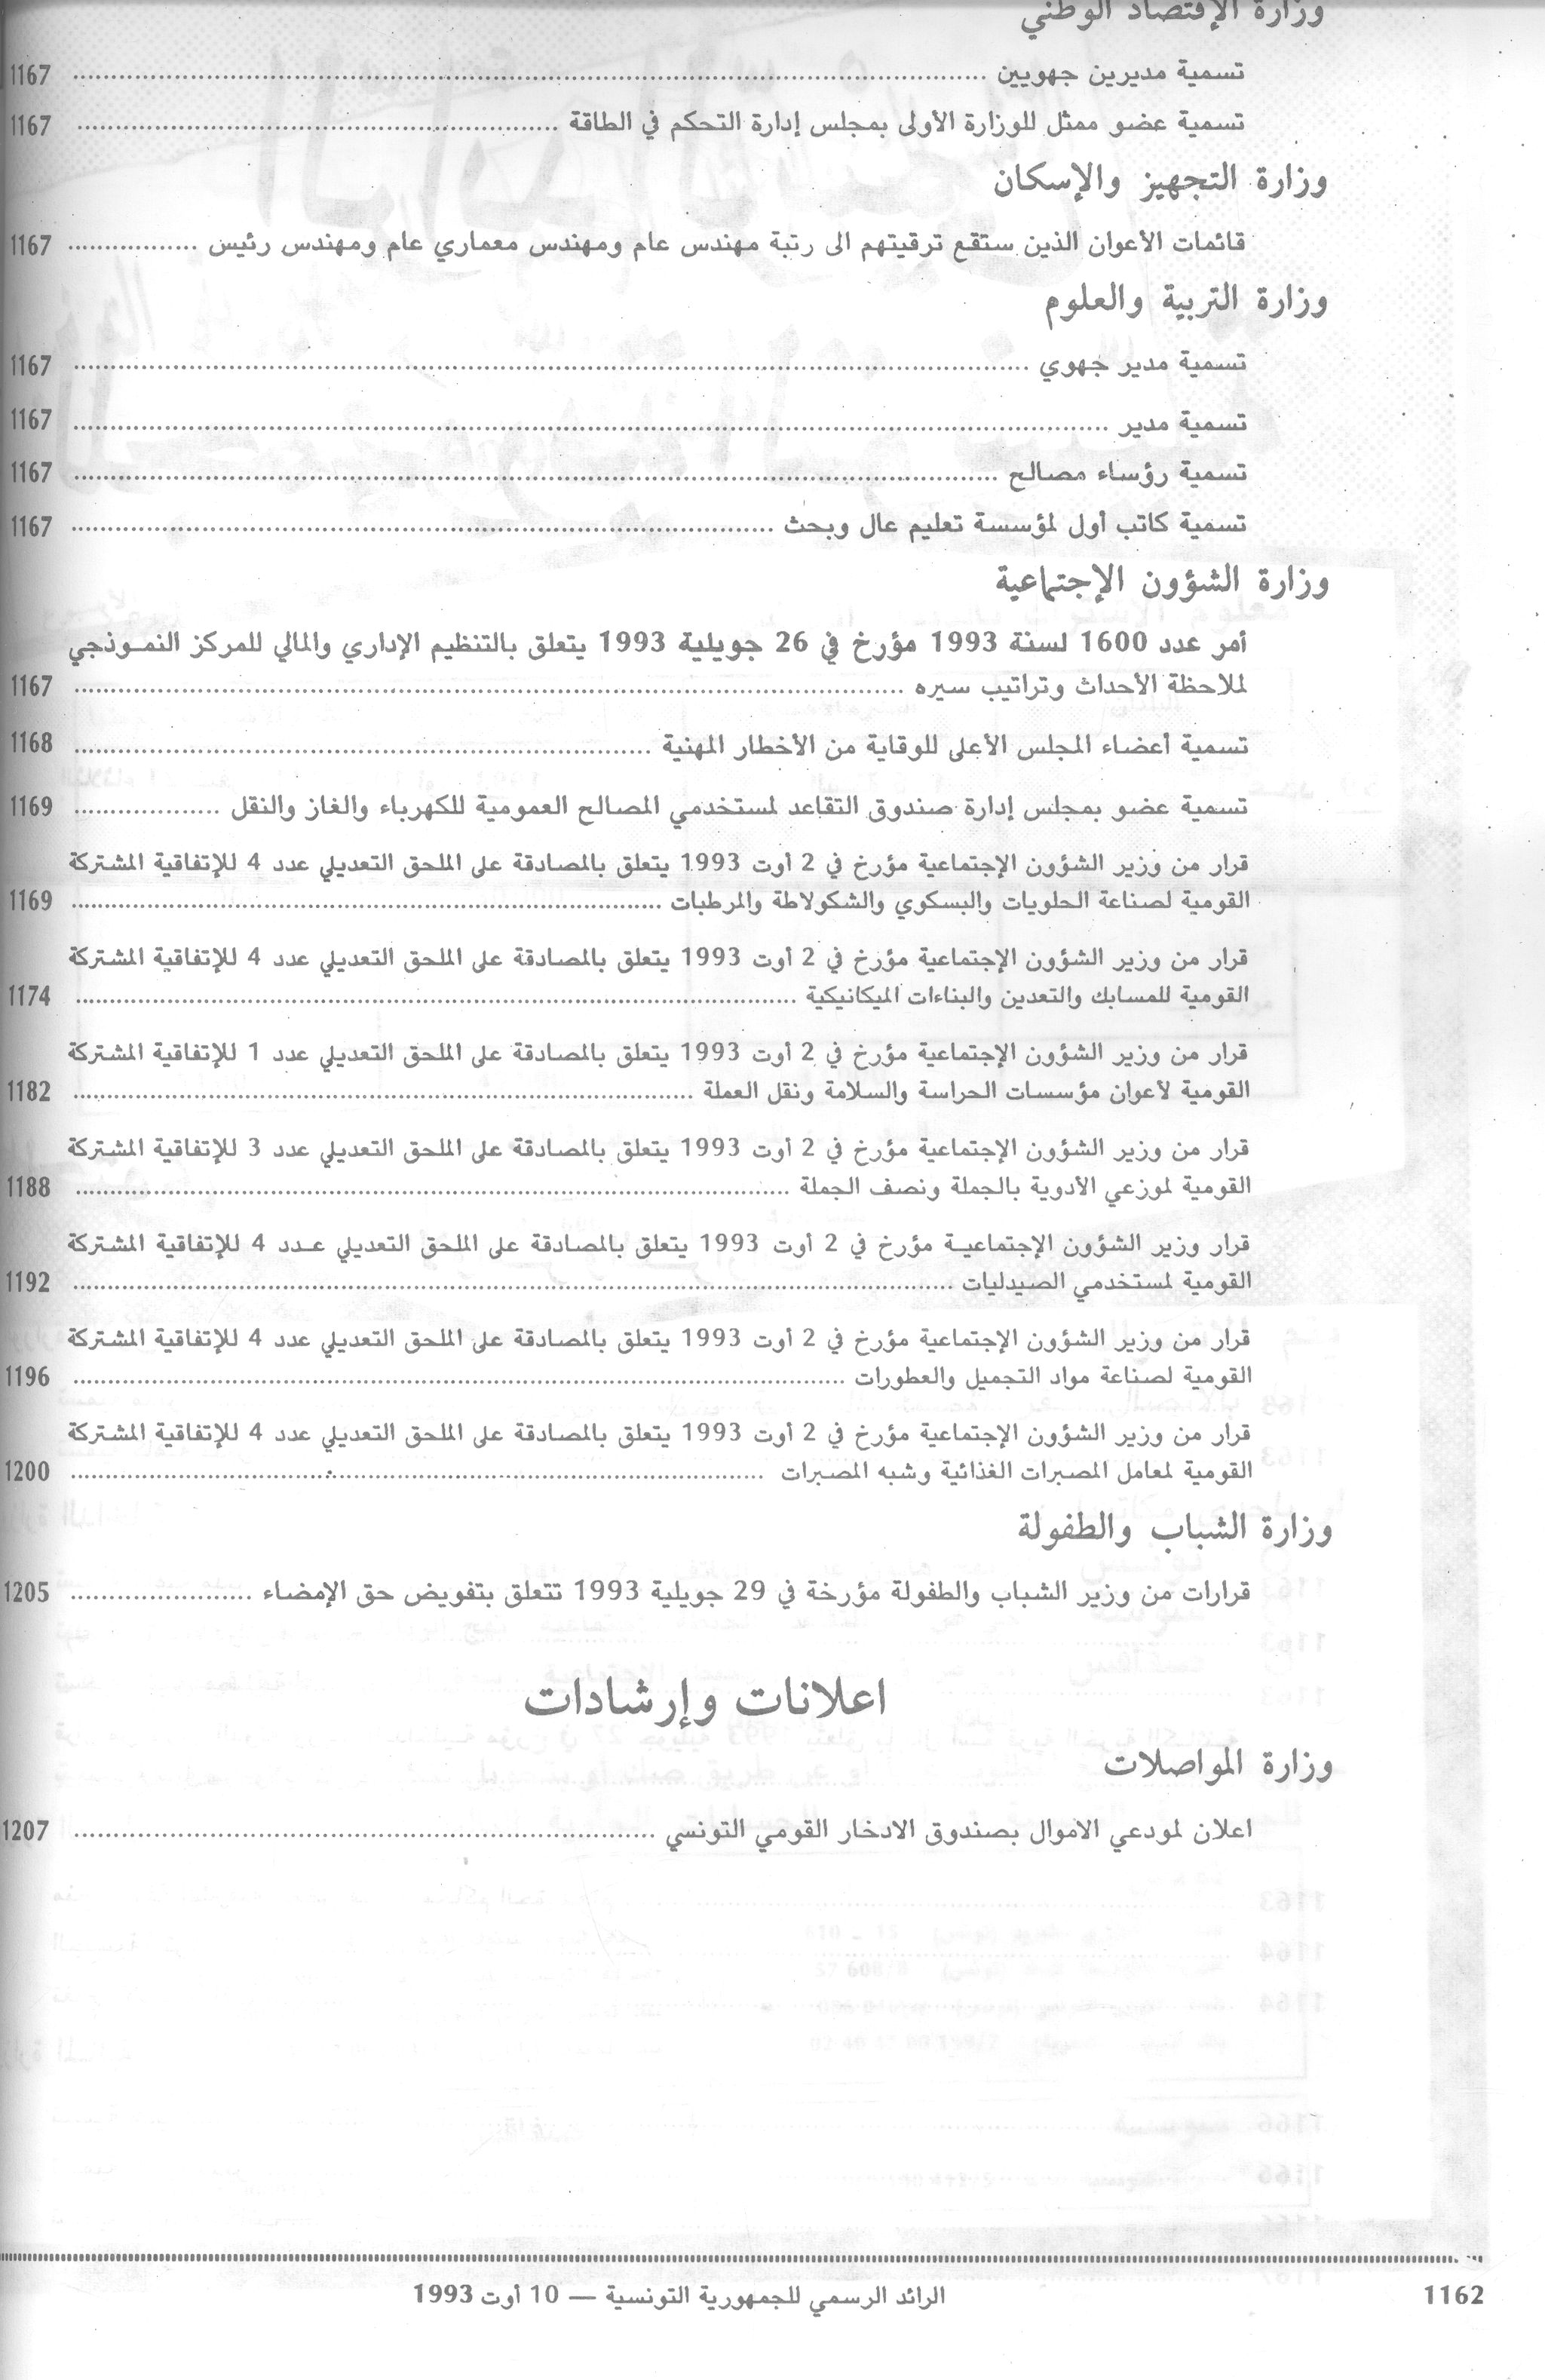 وزارة الإقتصاد الوطني
تسمية مديرين جهويين ........ 1167
تسمية عضو ممثل للوزارة الأولى بمجلس إدارة التحكم في الطاقة ........ 1167
وزارة التجهيز والإسكان
قائمات الأعوان الذين ستقع ترقيتهم الى رتبة مهندس عام ومهندس معماري عام ومهندس رئيس ........ 1167
وزارة التربية والعلوم
تسمية مدير جهوي ........ 1167
تسمية مدير ........ 1167
تسمية رؤساء مصالح ........ 1167
تسمية كاتب أول لمؤسسة تعليم عال وبحث ........ 1167
وزارة الشؤون الإجتماعية
أمر عدد 1600 لسنة 1993 مؤرخ في 26 جويلية 1993 يتعلق بالتنظيم الإداري والمالي للمركز النموذجي
لملاحظة الأحداث وتراتيب سيره ........ 1167
تسمية أعضاء المجلس الأعلى للوقاية من الأخطار المهنية ........ 1168
تسمية عضو بمجلس إدارة صندوق التقاعد لمستخدمي المصالح العمومية للكهرباء والغاز والنقل ........ 1169
قرار من وزير الشؤون الإجتماعية مؤرخ في 2 أوت 1993 يتعلق بالمصادقة على الملحق التعديلي عدد 4 للإتفاقية المشتركة
القومية لصناعة الحلويات والبسكوي والشكولاطة والمرطبات ........ 1169
قرار من وزير الشؤون الإجتماعية مؤرخ في 2 أوت 1993 يتعلق بالمصادقة على الملحق التعديلي عدد 4 للإتفاقية المشتركة
القومية للمسابك والتعدين والبناءات الميكانيكية ........ 1174
قرار من وزير الشؤون الإجتماعية مؤرخ في 2 أوت 1993 يتعلق بالمصادقة على الملحق التعديلي عدد 1 للإتفاقية المشتركة
القومية لأعوان مؤسسات الحراسة والسلامة ونقل العملة ........ 1182
قرار من وزير الشؤون الإجتماعية مؤرخ في 2 أوت 1993 يتعلق بالمصادقة على الملحق التعديلي عدد 3 للإتفاقية المشتركة
القومية لموزعي الأدوية بالجملة ونصف الجملة ........ 1188
قرار وزير الشؤون الإجتماعية مؤرخ في 2 أوت 1993 يتعلق بالمصادقة على الملحق التعديلي عدد 4 للإتفاقية المشتركة
القومية لمستخدمي الصيدليات ........ 1192
قرار من وزير الشؤون الإجتماعية مؤرخ في 2 أوت 1993 يتعلق بالمصادقة على الملحق التعديلي عدد 4 للإتفاقية المشتركة
القومية لصناعة مواد التجميل والعطورات ........ 1196
قرار من وزير الشؤون الإجتماعية مؤرخ في 2 أوت 1993 يتعلق بالمصادقة على الملحق التعديلي عدد 4 للإتفاقية المشتركة
القومية لمعامل المصبرات الغذائية وشبه المصبرات ........ 1200
وزارة الشباب والطفولة
قرارات من وزير الشباب والطفولة مؤرخة في 29 جويلية 1993 تتعلق بتفويض حق الإمضاء ........ 1205
اعلانات وإرشادات
وزارة المواصلات
اعلان لمودعي الاموال بصندوق الادخار القومي التونسي ........ 1207
1162 الرائد الرسمي للجمهورية التونسية — 10 أوت 1993